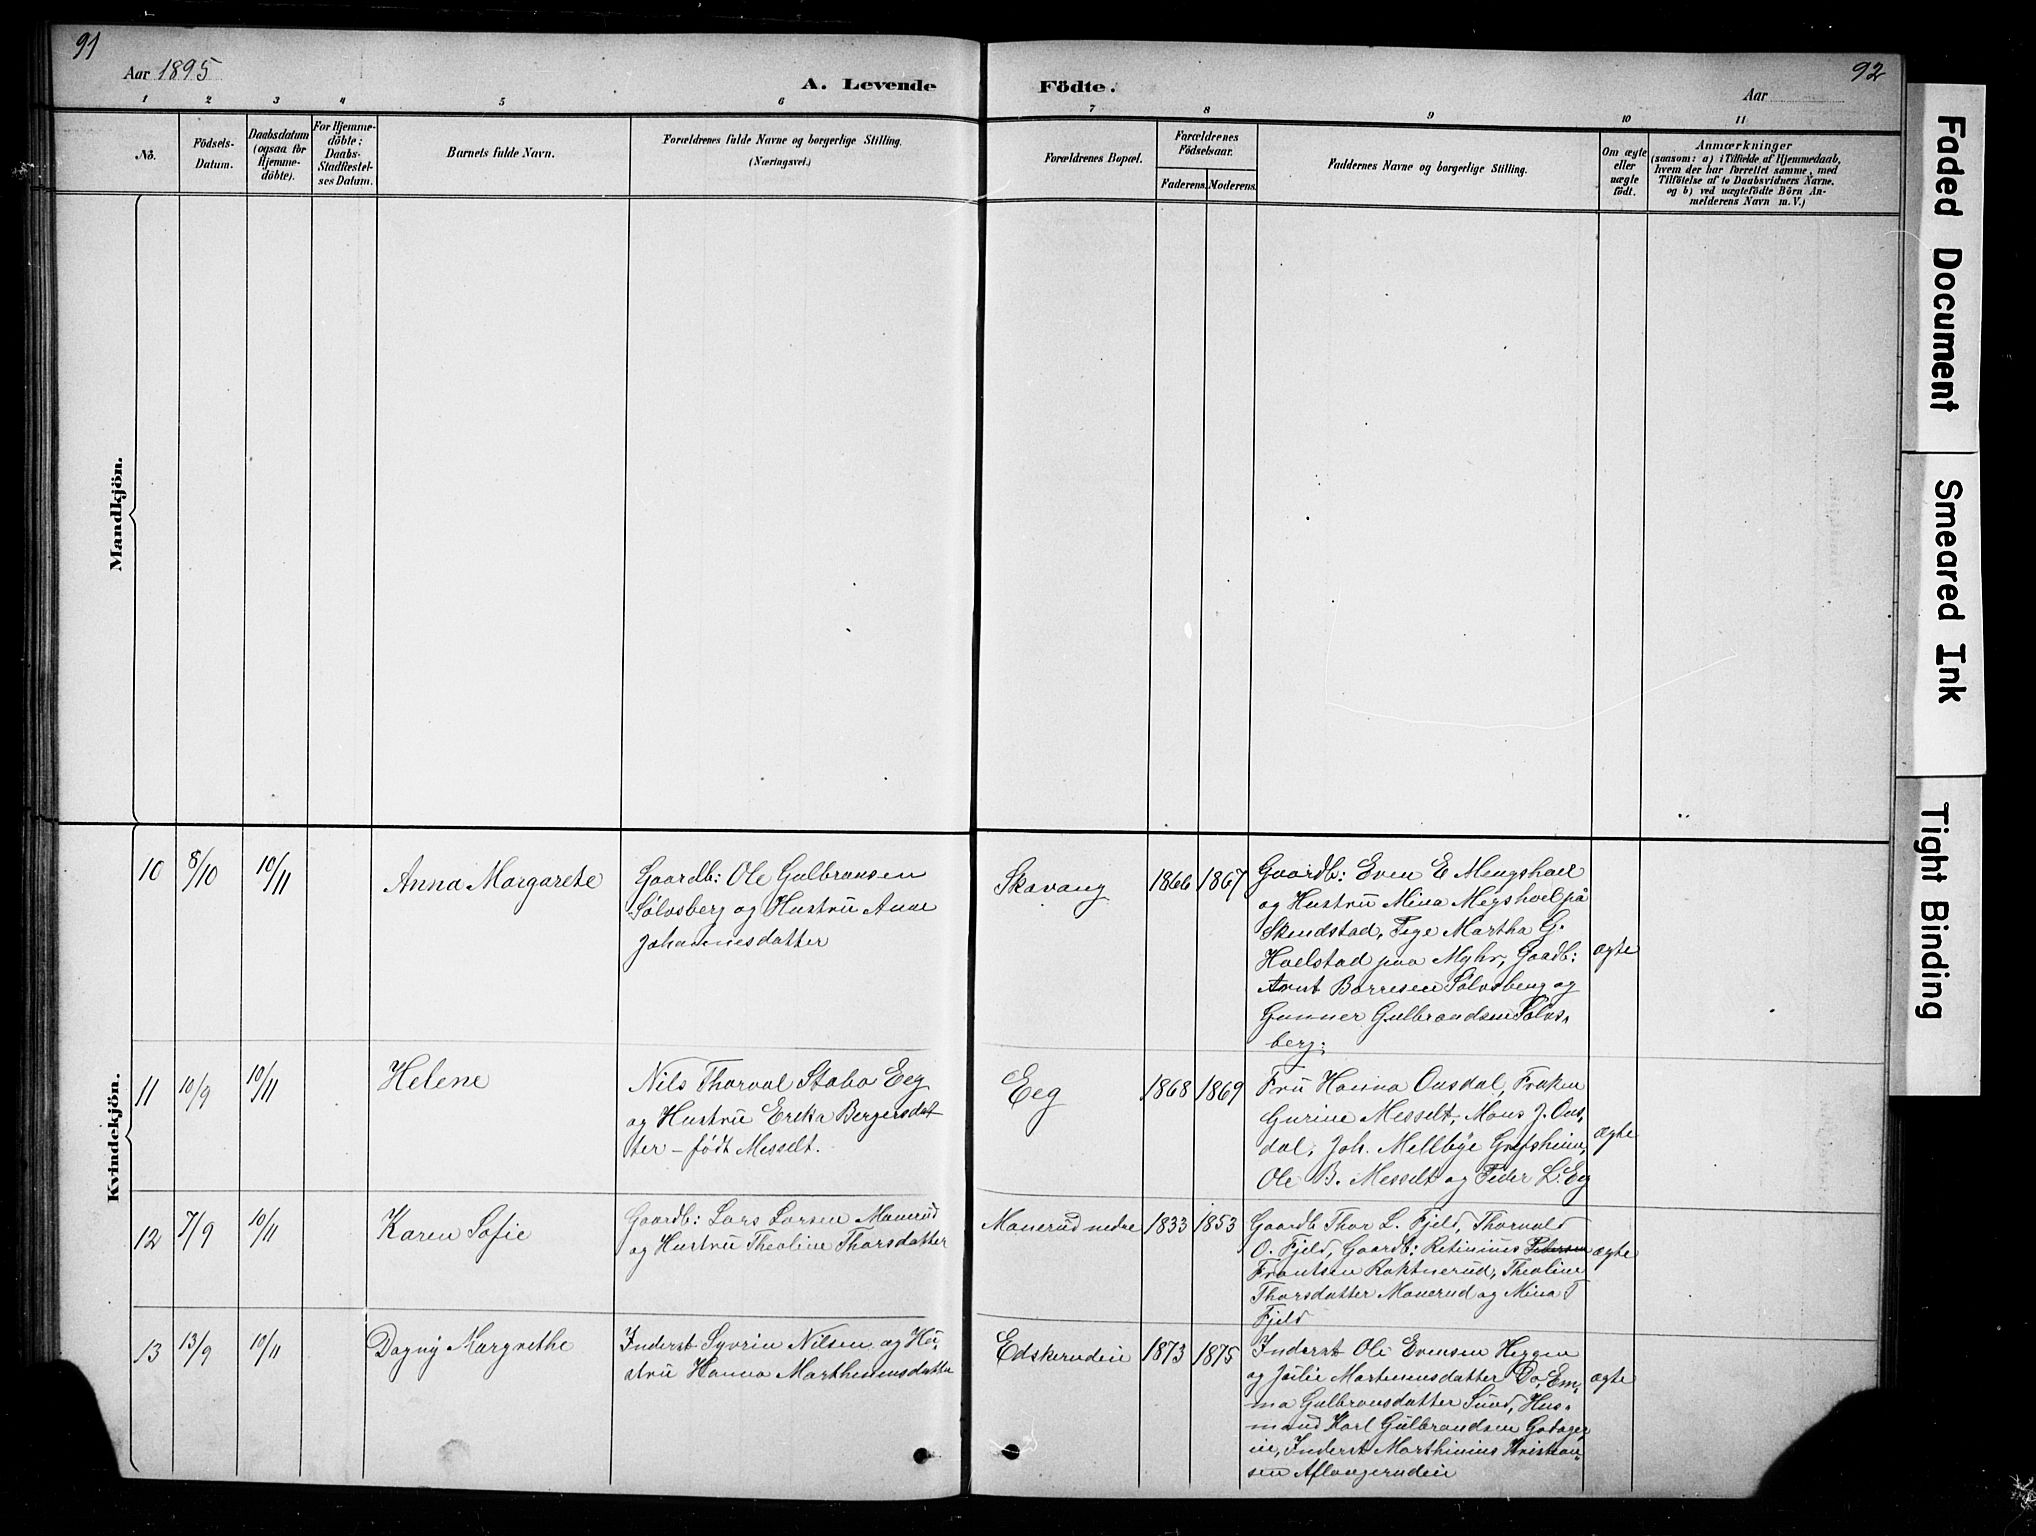 91
92
Aar 1895
A. Levende
Födte.
Aar
1 2 3 4 5 6 7 8 9 10 11
No.
Födsels-
Datum.
Daabsdatum
(ogsaa for
Hjemme-
döbte).
For Hjemme-
döbte;
Daabs-
Stadfæstel-
ses Datum.
Barnets fulde Navn.
Forældrenes fulde Navne og borgerlige Stilling.
(Næringsvei.)
Forældrenes Bopæl.
Forældrenes
Födselsaar.
Faderens. Moderens.
Faddernes Navne og borgerlige Stilling.
Om ægte
eller
uægte
födt.
Anmærkninger
(saasom: a) i Tilfælde af Hjemmedaab,
hvem der har forrettet samme, med
Tilföielse af to Daabsvidners Navne.
og b) ved uægtefödte Börn An-
melderens Navn m. V.)
Mandkjön.
Kvindekjön.
10
8/10
10/11
Anna Margarete
Gaardb: Ole Gulbransen
Sølvsberg og Hustru Anne
Johannesdatter
Skavang
1866
1867
Gaardb: Even E Mengshoel
og Hustru Mina Megshoel på
Skendstad, Pige Martha G.
Hoelstad paa Myhr, Gaardb:
Arnt Borresen Sølvsberg og
Gunner Gulbrandsen Sølvs-
berg.
ægte
11
10/9
10/11
Helene
Nils Thorval Stabo Eeg
og Hustru Erika Bergersdat
ter – født Messelt.
Eeg
1868
1869
Fru Hanna Onsdal, Frøken
Gurine Messelt, Mons J. Ons,
dal, Joh. Mellbye Grefsheim,
Ole B. Messelt og Peder L. Eeg
ægte
12
7/9
10/11
Karen Sofie
Gaardb: Lars Larsen Manerud
og Hustru Theoline Thorsdatter
Manerud nedre
1833
1853
Gaardb Thor L. Fjeld, Thorvald
O. Fjeld, Gaardb: Retinius Petersen
Frantsen Roktnerud, Theoline
Thorsdatter Manerud og Mina T
Fjeld
ægte
13
13/9
10/11
Dagny Margrethe
Inderst Syvrin Nilsen og Hu-
stru Hanna Marthinusdatter
Edskerudeie
1873
1875
Inderst Ole Evensen Heggen
og Julie Martinusdatter Do, Em,
ma Gulbransdatter Sund, Hus-
mand Karl Gulbrandsen Godager
eie, Inderst Marthinius Kristian-
sen Aflangerudeie
ægte
Faded Document
Smeared Ink
Tight Binding